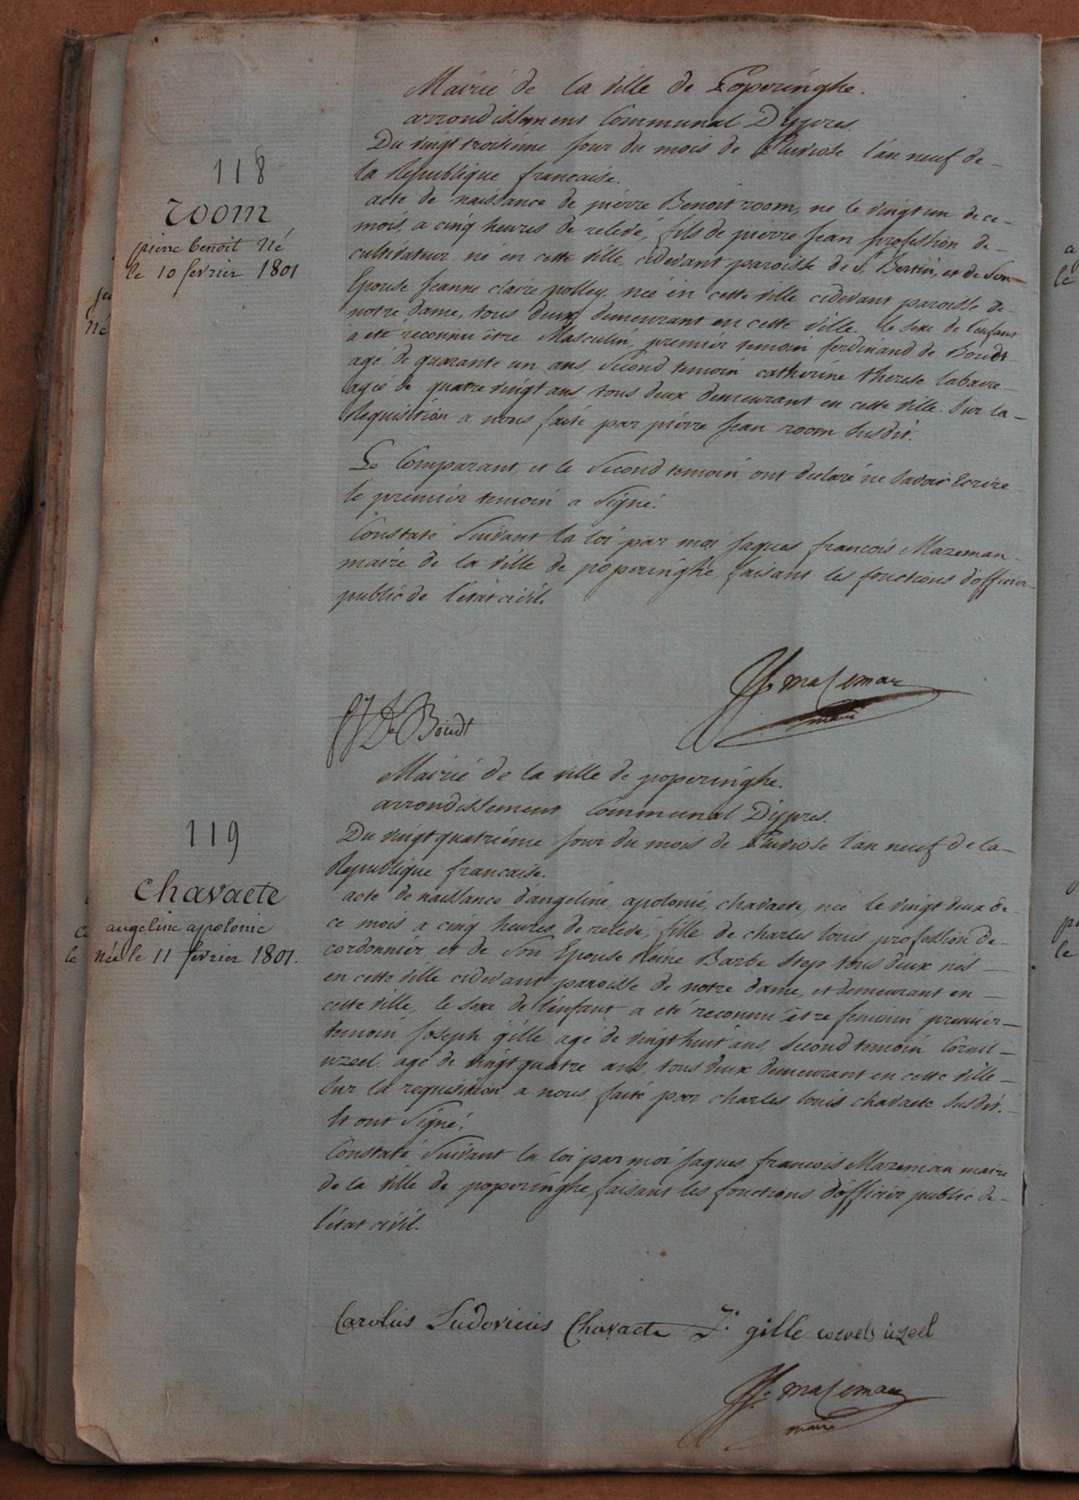 Mairié de la ville de Poperinghe.
arrondissement Communal D'ypres.
118
room
pierre benoit Né
le 10 fevrier 1801
Du vingt troisième jour du mois de Pluviose l'an neuf de-
la Republique francaise.
acte de naissance de pierre Benoit room, né le vingt un de ce-
mois, a cinq heures de relevé, fils de pierre jean profession de-
cultivateur né en cette ville, cidevant paroisse de S. Bertin, et de Son-
Epouse Jeanne claire nolley, née en cette ville cidevant paroisse de-
notre dame, tous deux demeurant en cette ville. le sexe de l'enfant
a eté reconnu être Masculin, premier temoin ferdinand de Boudt
agé de quarante un ans, Second temoin catherine therese labaere-
agée de quatre vingt ans tous deux demeurant en cette ville. Sur la-
Requisition a nous faite par pierre Jean room Susdit.
Le Comparant et le Second temoin ont declaré ne Savoir Ecrire
le premier temoin a Signé.
Constaté Suivant la loi par moi jaques francois Mazeman-
maire de la ville de poperinghe, faisant les fonctions d'officier-
public de l'état civil.
De Boudt
Mazeman
maire
Mairié de la ville de poperinghe.
arrondissement Communal D'ypres.
119
Chavaete
angeline appolonie
née le 11 fevrier 1801.
Du vingt quatrième jour du mois de Pluviose l'an neuf de la-
Republique francaise.
acte de naissance d'angeline, apolonie, chavaete, née le vingt deux de-
ce mois a cinq heures, de relevé, fille de charles louis profession de-
cordonnier et de Son Epouse Reine Barbe Stop tous deux nés-
en cette ville cidevant paroisse de notre dame, et demeurant en-
cette ville, le sexe de l'enfant a eté reconnu être feminin premier-
temoin joseph gille, agé de vingt huit ans, Second temoin Cornil-
uzeel, agé de vingt quatre ans, tous deux demeurant en cette ville-
Sur la requisition a nous faite par charles louis chavaete Susdit.-
Et ont Signé.
Constaté Suivant la loi par moi jaques francois Mazeman maire
de la ville de poperinghe, faisant les fonctions d'officier public de-
l'état civil.
Carolus Ludovicus Chavaete J. gille cornelis uzeel
Mazeman
maire